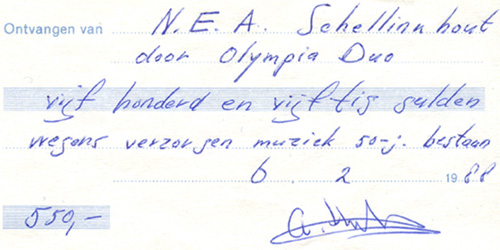 Ontvangen van N.E.A. Schellinkhout
door Olympia Duo
vijf honderd en vijftig gulden
wegens verzorgen muziek 50-j. bestaan
6 . 2 1988
550,-